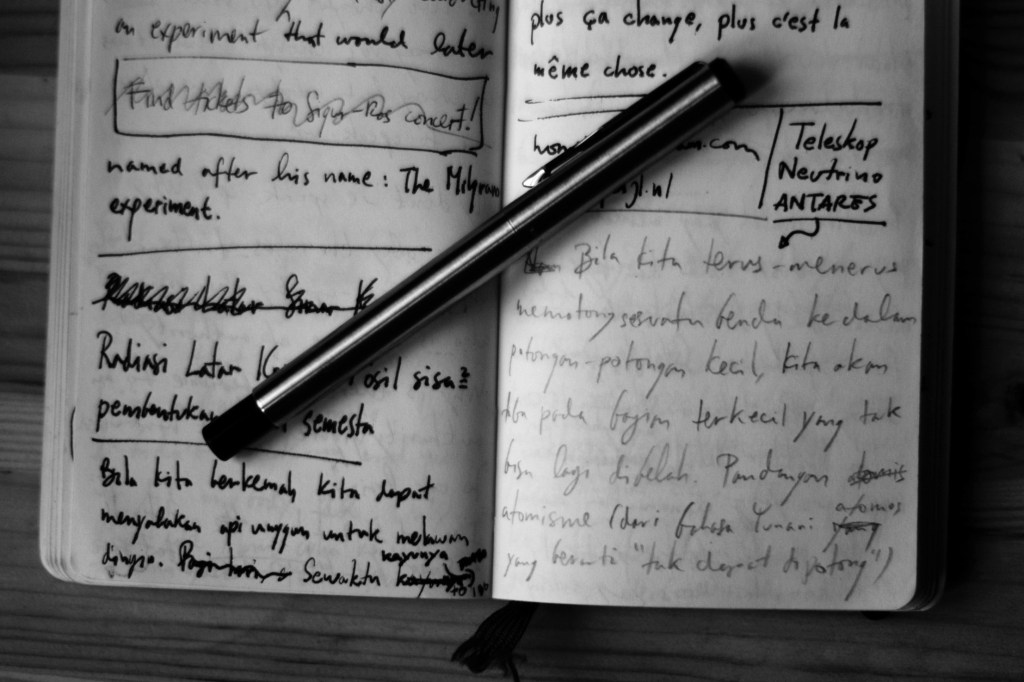 an experiment that would later
Find tickets to Sigur-Ros concert!
named after his name: The Milgram
experiment.
Radiasi Latar
osil sisa²
pembentukan semesta
Bila kita berkemah kita dapat
menyalakan api unggun untuk melawan
dingin. Sewaktu kayunya
plus ça change, plus c'est la
même chose.
Teleskop
Neutrino
ANTARES
Bila kita terus-menerus
memotong sesuatu benda ke dalam
potongan-potongan kecil, kita akan
tiba pada bagian terkecil yang tak
bisa lagi dibelah. Pandangan
atomisme (dari bahasa Yunani atomos
yang berarti "tak dapat dipotong")